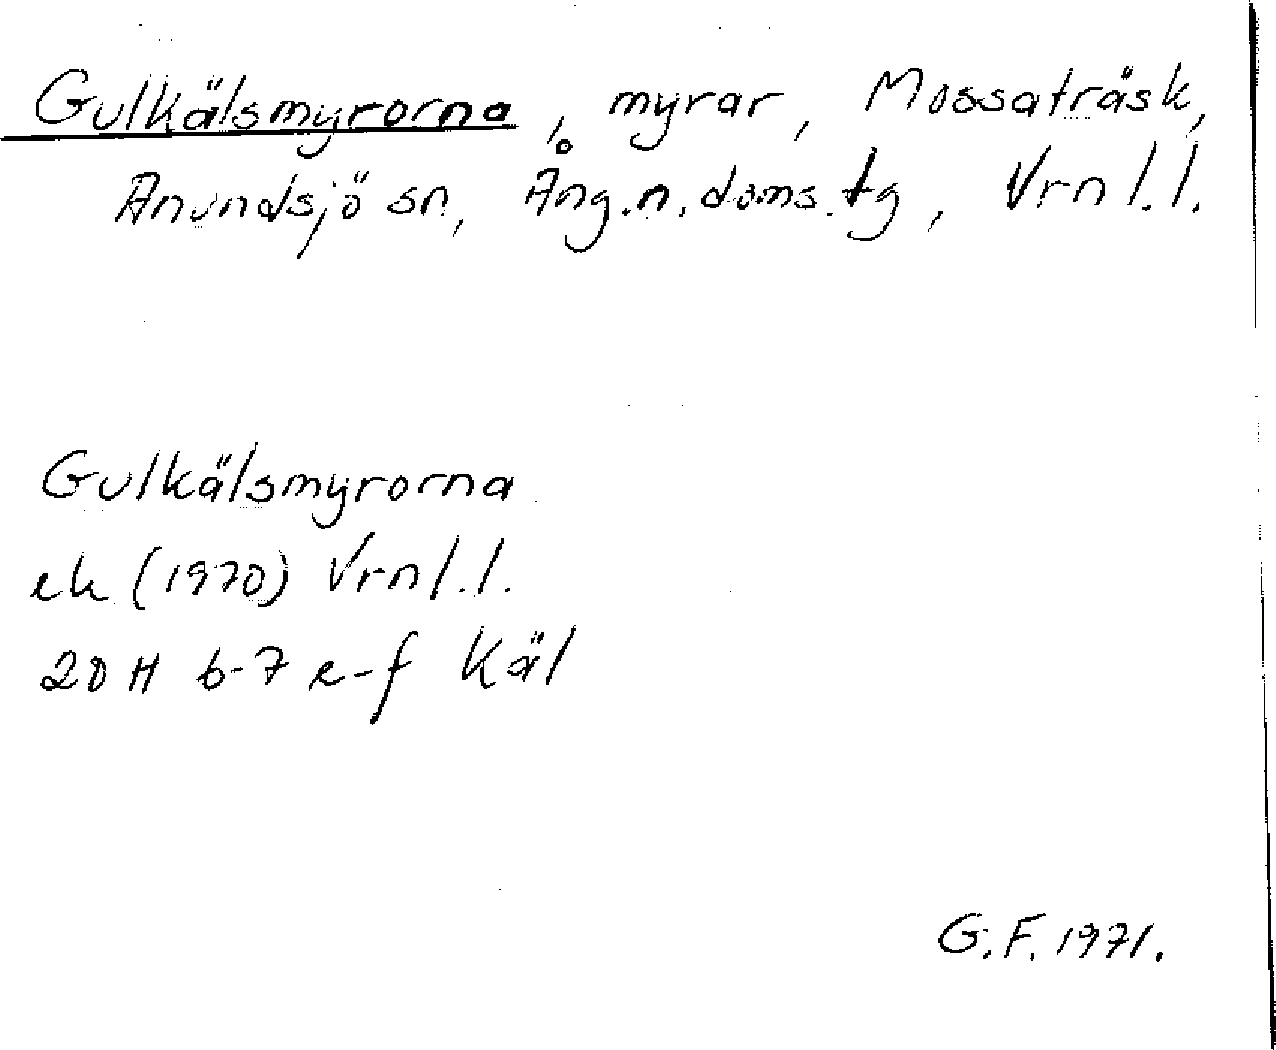 Gulkälsmyrorna, myrar, Mossaträsk,
Anundsjö sn, Ång.n.doms.tg, Vrnl.l.
Gulkälsmyrorna
ek (1970) Vrnl.l.
20 H 6-7 e-f Käl
G.F. 1971.